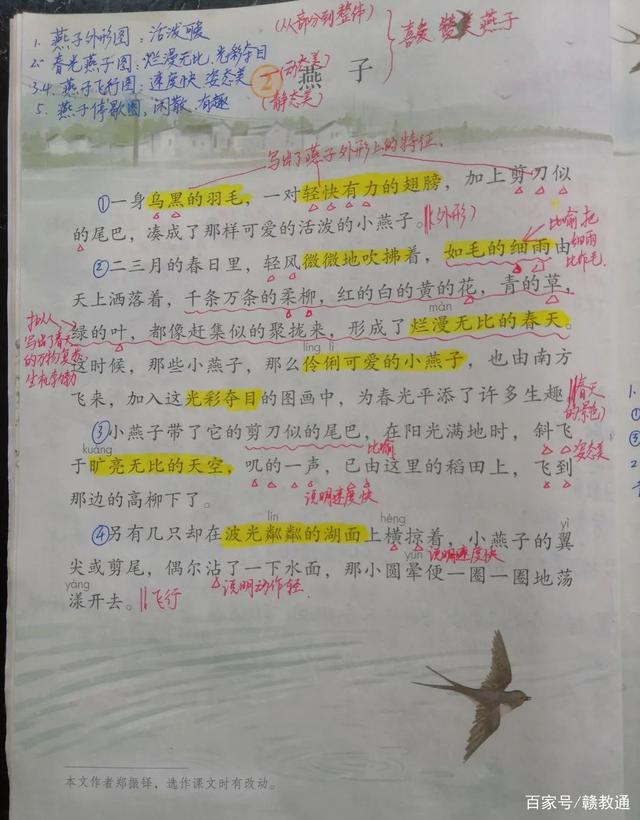 1. 燕子外形图：活泼可爱
(从部分到整体)
喜爱 赞美燕子
2. 春光燕子图：烂漫无比,光彩夺目
3.4. 燕子飞行图：速度快 姿态美
(动态美)
5. 燕子停歇图,闲散 有趣
(静态美)
2 燕子
写出了燕子外形上的特征.
①一身乌黑的羽毛，一对轻快有力的翅膀，加上剪刀似
的尾巴，凑成了那样可爱的活泼的小燕子。
(外形)
比喻把
细雨
比作毛.
②二三月的春日里，轻风微微地吹拂着，如毛的细雨由
天上洒落着，千条万条的柔柳，红的白的黄的花，青的草，
màn
绿的叶，都像赶集似的聚拢来，形成了烂漫无比的春天。
拟人
写出了春天
的万物复苏
生机勃勃
líng lì
这时候，那些小燕子，那么伶俐可爱的小燕子，也由南方
飞来，加入这光彩夺目的图画中，为春光平添了许多生趣。
(春天
的景色)
③小燕子带了它的剪刀似的尾巴，在阳光满地时，斜飞
比喻
姿态美
kuàng
于旷亮无比的天空，叽的一声，已由这里的稻田上，飞到
说明速度快
那边的高柳下了。
lín
héng
yì
④另有几只却在波光粼粼的湖面上横掠着，小燕子的翼
说明速度快
yùn
尖或剪尾，偶尔沾了一下水面，那小圆晕便一圈一圈地荡
说明动作轻
yàng
漾开去。
飞行
本文作者郑振铎，选作课文时有改动。
百家号/赣教通